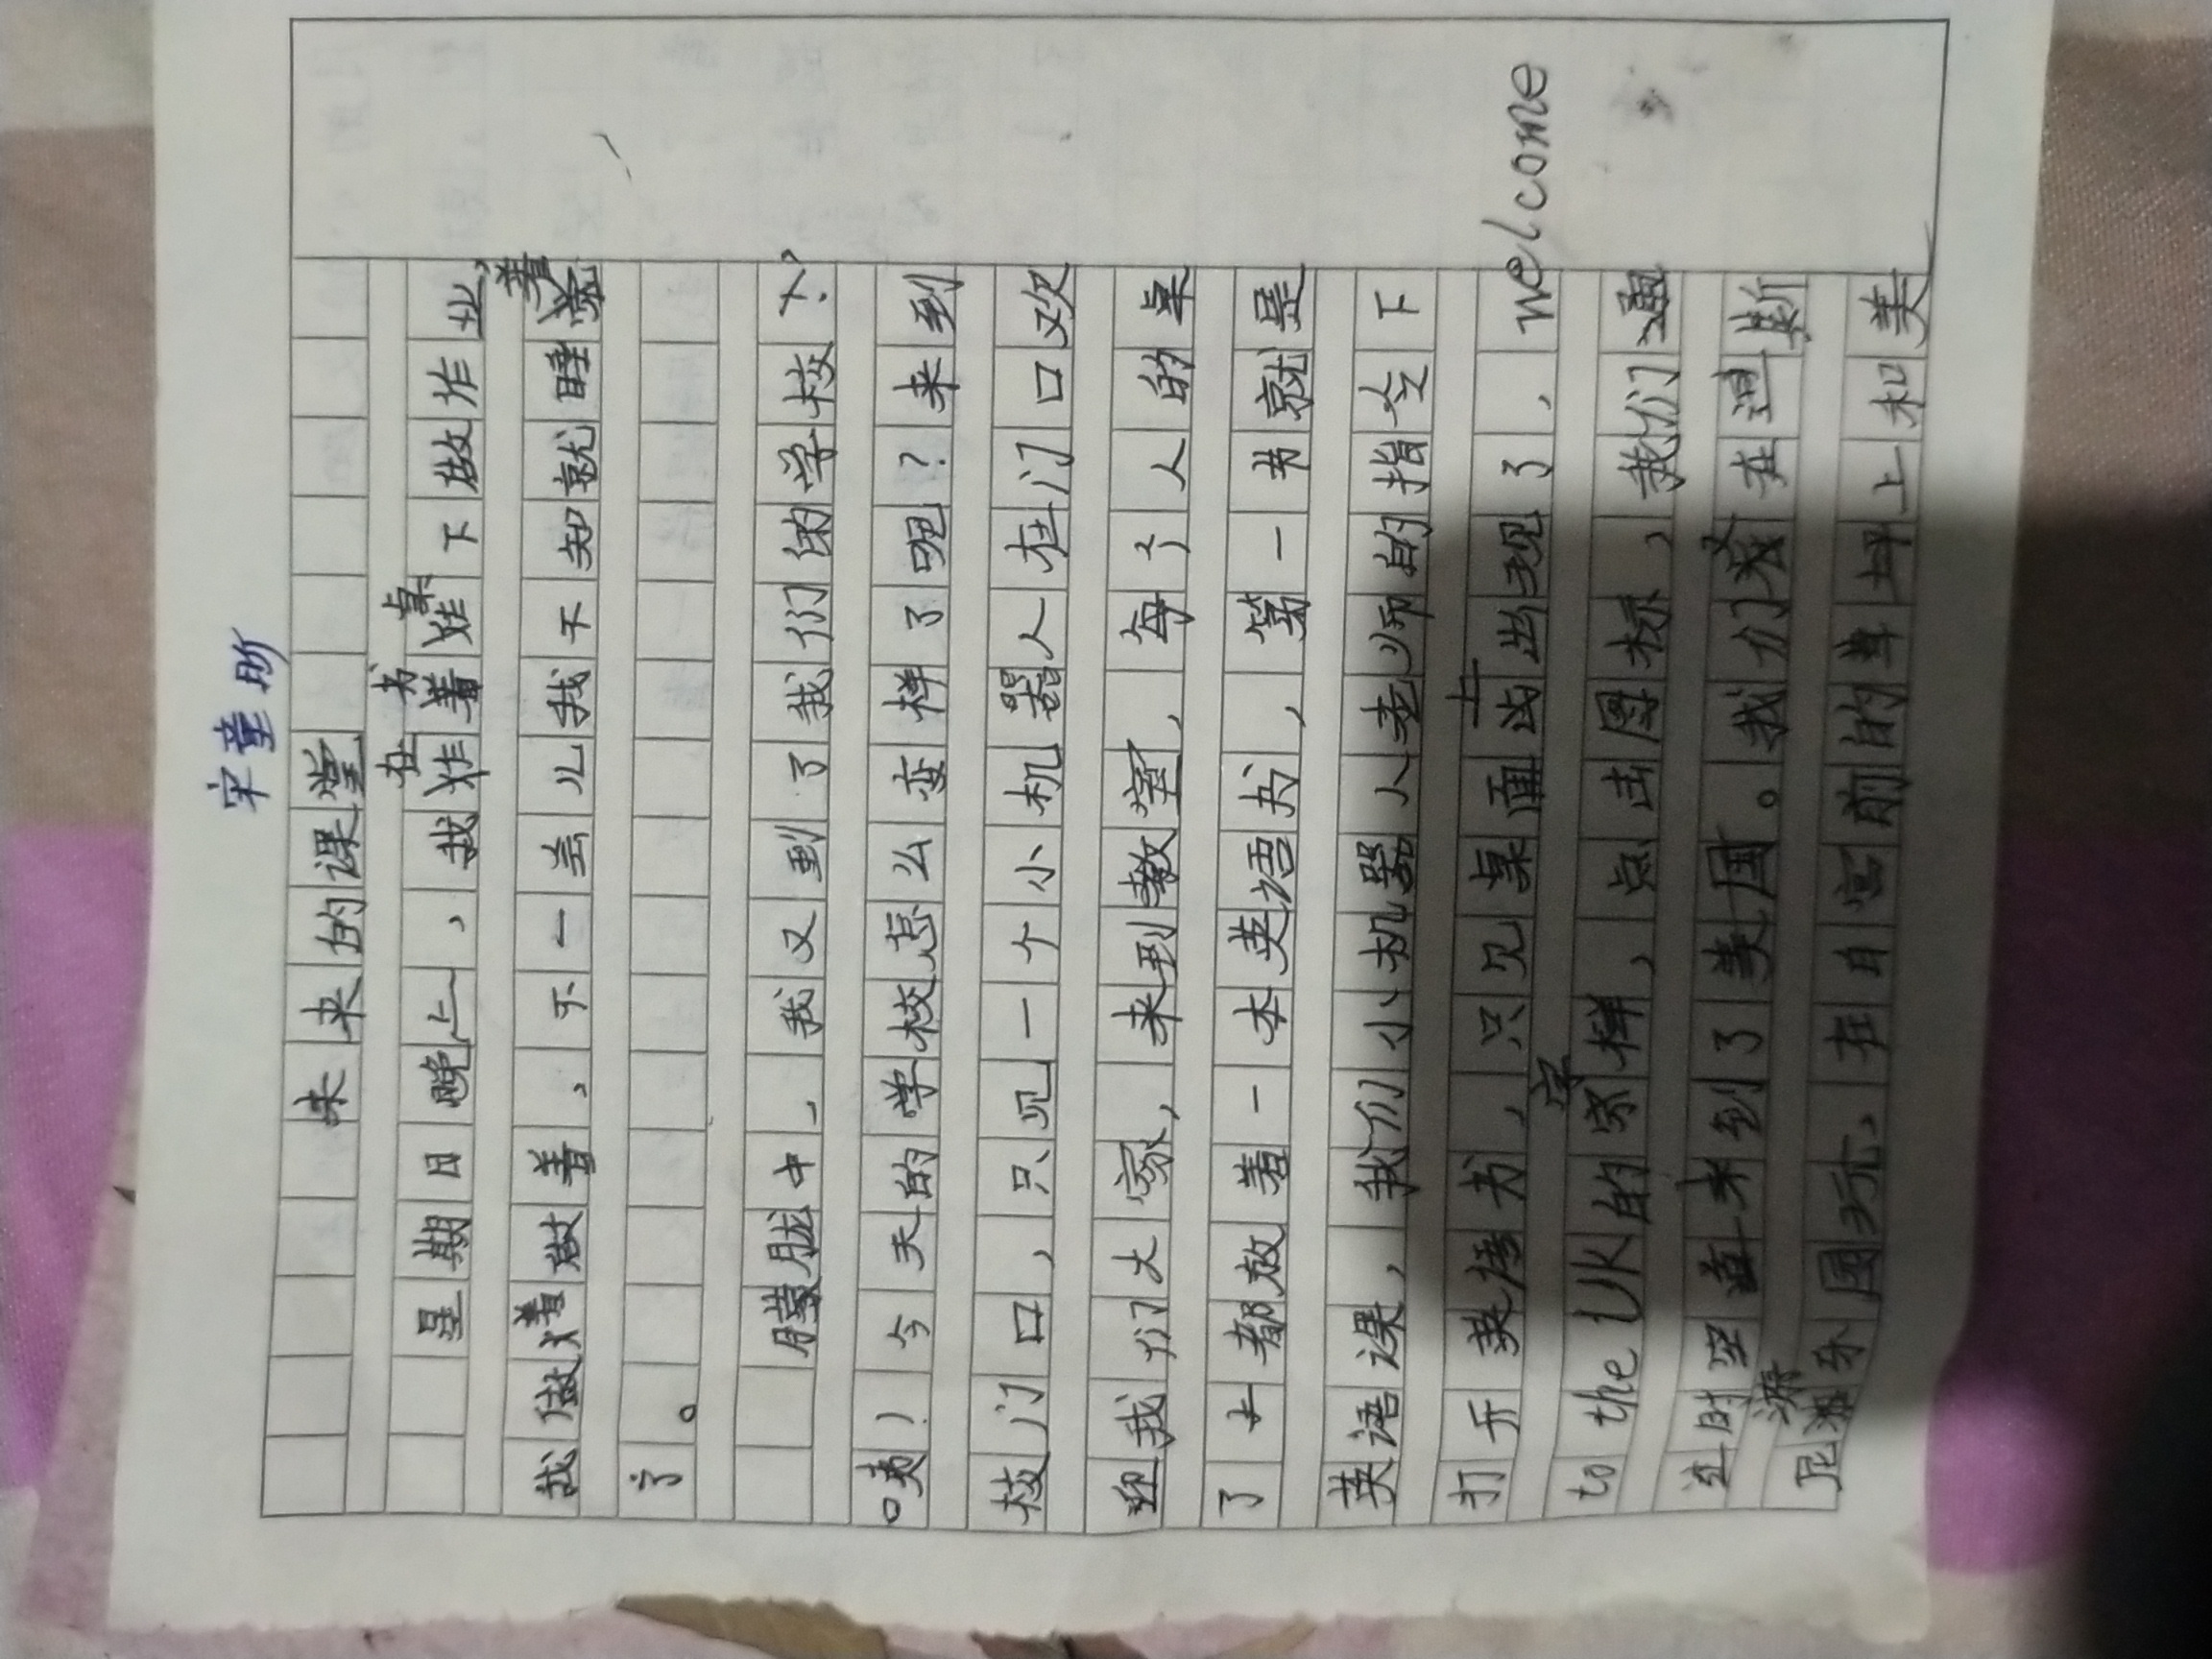 宋童彤
未来的课堂
星期日晚上,我在书桌下做作业,
我做着做着,不一会儿我不知就睡着
了。
朦胧中,我又到了我们的学校?
咦!今天的学校怎么变样了呢?来到
校门口,只见一个小机器人在门口欢
迎我们大家,来到教室,每个人的桌
了上都放着一本英语书,第一书就是
英语课,我们小机器人老师的指令下
打开英语书,只见桌面上出现了,welcome
to the UK的字样,点击图标,我们通
过时空 来到了美国。我们 在迪斯
尼游乐园玩,在白宫前的草坪上和美